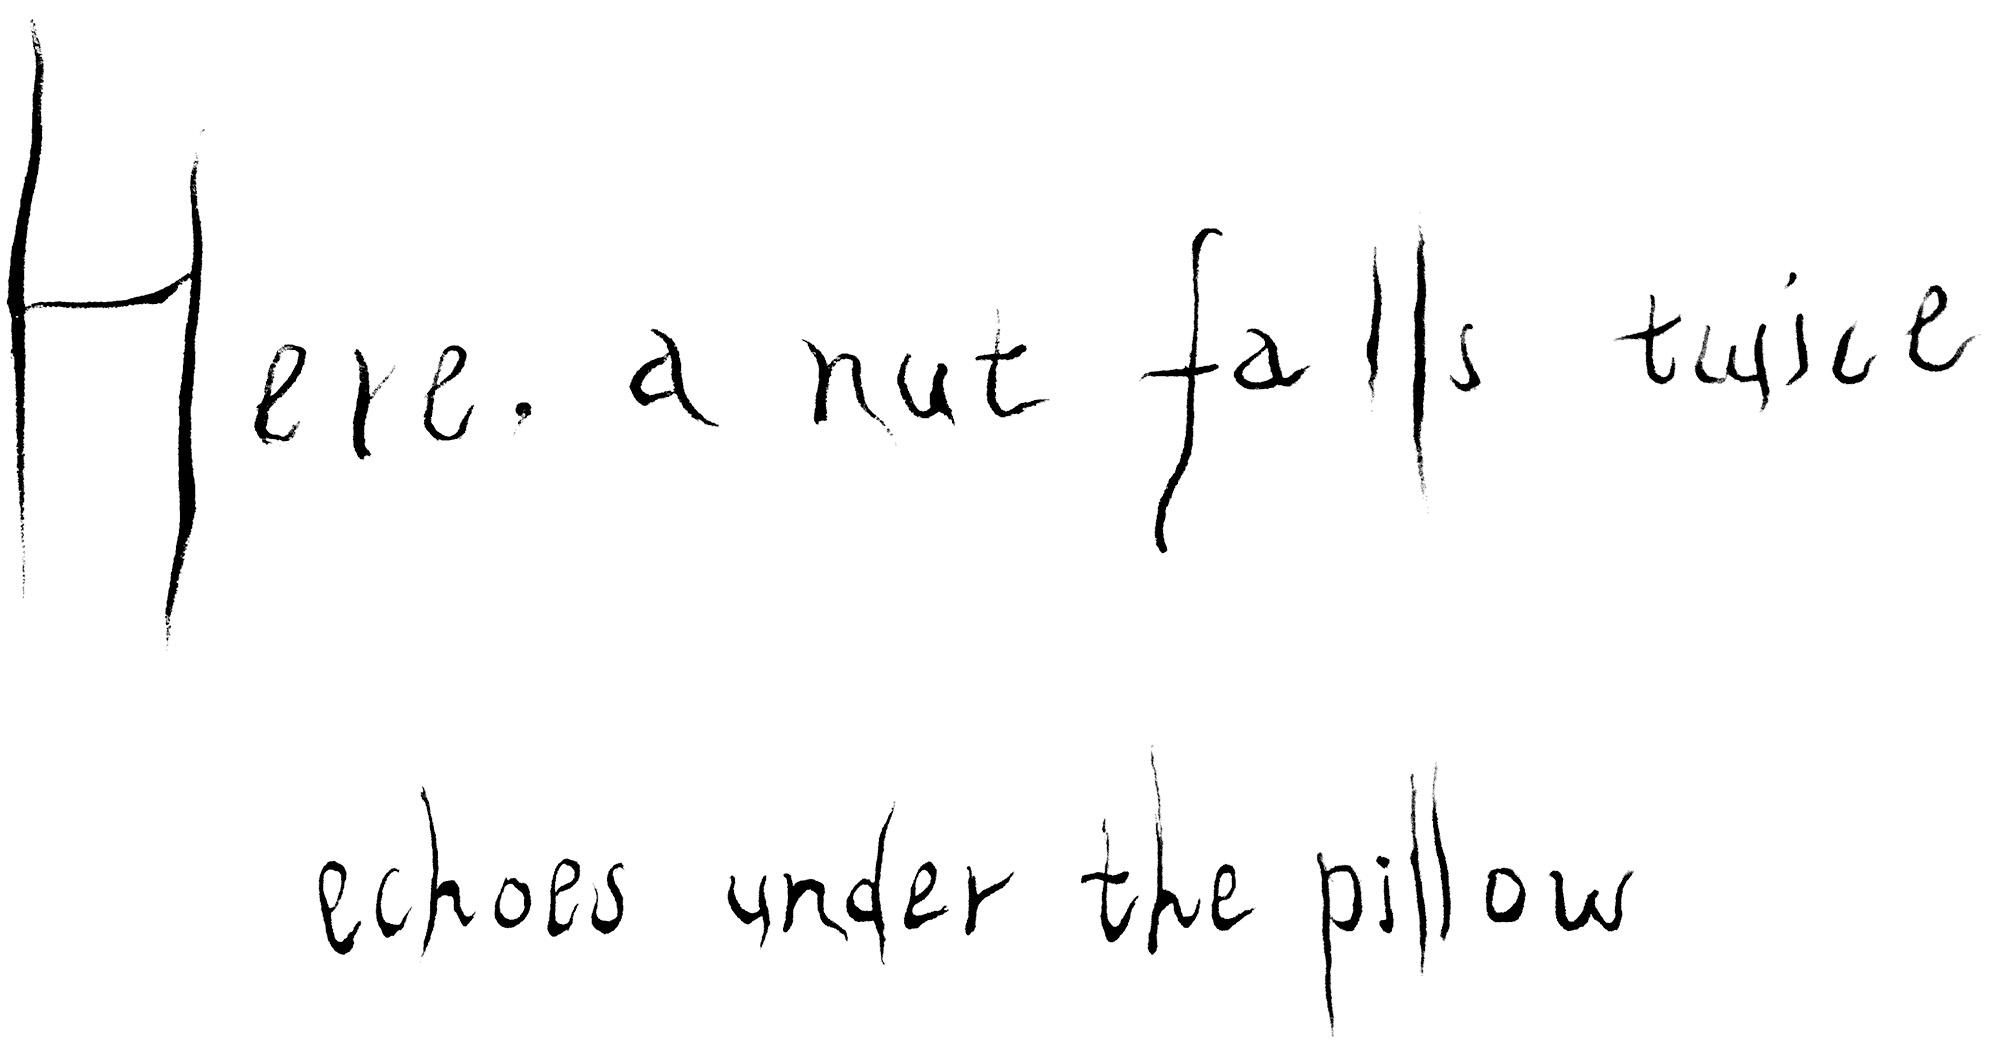 Here. a nut falls twice
echoes under the pillow